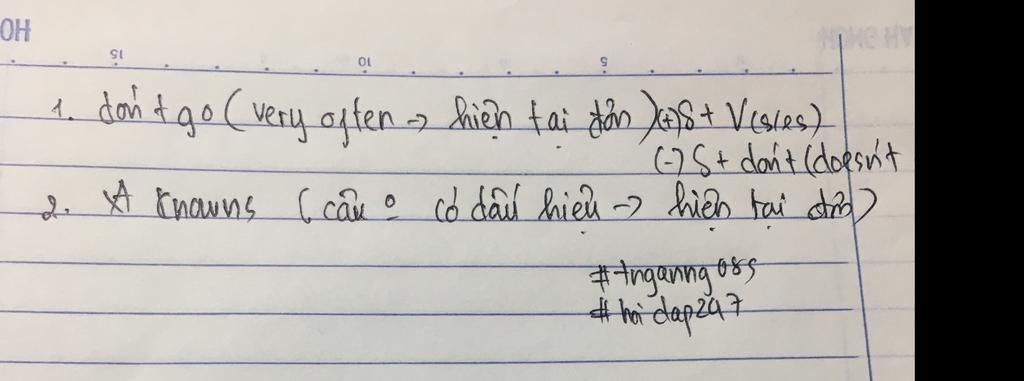 HO
15 10 5
1. don't go ( very often → hiện tại đơn ) (+) S + V(s/es)
(-) S + don't (doesn't
2. knowns ( câu o có dấu hiệu → hiện tại đơn )
#tnganng085
#hoidap247